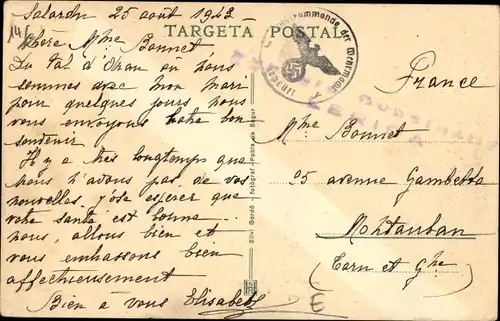 14
Salardu 25 août 1943
TARGETA POSTAL
Chère Mme Bonnet
Du Val d'Aran où nous
sommes avec mon mari
pour quelques jours nous
vous envoyons notre bon
souvenir
Il y a très longtemps que
nous n'avons pas de vos
nouvelles. j'ose espérer que
votre santé est bonne
nous, allons bien et
vous embrassons bien
affectueusement
Bien a vous Elisabeth
France
Mme Bonnet
25 avenue Gambetta
Montauban
(Tarn et Gne)
E
der Wehrmacht
CENSURA GUBERNATIVA